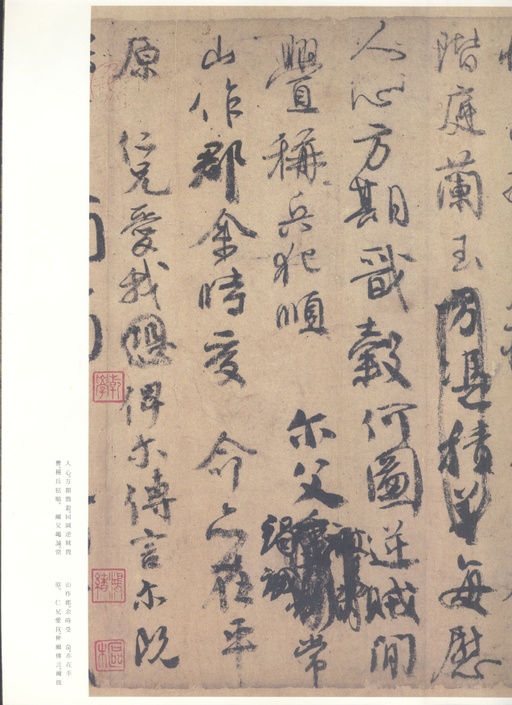 階庭蘭玉方憑積善每慰
人心方期戩穀何圖逆賊閒
釁稱兵犯順尔父竭誠常
山作郡余時受命亦在平
原仁兄愛我恐俾尔傳言尔既
乾學
人心方期戩穀何圖逆賊間
釁稱兵犯順爾父竭誠常
山作郡余時受命亦在平
原仁兄愛我俾爾傳言爾既